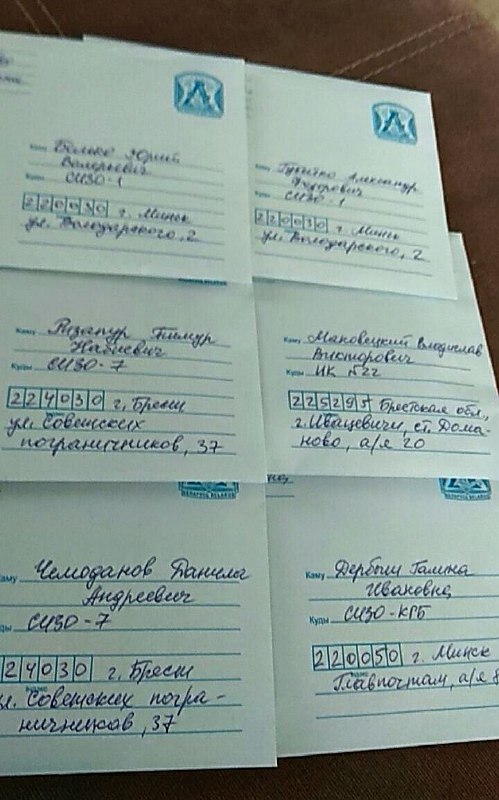 Каму Белько Юрий
Валерьевич
Куды СИЗО-1
220030 г. Минск
ул. Володарского, 2
Каму Александр
Федорович
Куды СИЗО-1
220030 г. Минск
ул. Володарского, 2
Каму Ризапур Тимур
Набиевич
Куды СИЗО-7
224030 г. Брест
ул. Советских
пограничников, 37
Каму Маковецкий Владислав
Викторович
Куды ИК №22
225295 Брестская обл.,
г. Ивацевичи, ст. Дома-
ново, а/я 20
Каму Чемоданов Данила
Андреевич
Куды СИЗО-7
24030 г. Брест
ул. Советских погра-
ничников, 37
Каму Дербыш Галина
Ивановна
Куды СИЗО-КГБ
220050 г. Минск
Главпочтамт, а/я 8